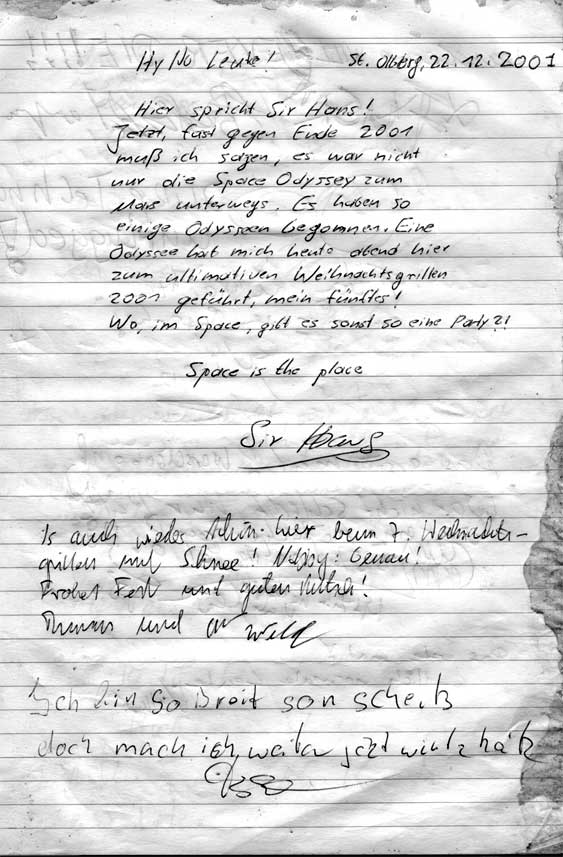 Hy No Leute! St. Ollberg, 22.12.2001
Hier spricht Sir Hans!
Jetzt, fast gegen Ende 2001
muß ich sagen, es war nicht
nur die Space Odyssey zum
Mars unterwegs. Es haben so
einige Odysseen begonnen. Eine
Odyssee hat mich heute abend hier
zum ultimativen Weihnachtsgrillen
2001 geführt, mein fünftes!
Wo, im Space, gibt es sonst so eine Party?!
Space is the place
Sir Hans
Is auch wieder schön hier beim 7. Weihnachts-
grillen mit Schnee! Genau!
Frohes Fest und guten Rutsch!
Thomas und
Ich bin so Breit son scheiß
doch mach ich weiter jetzt